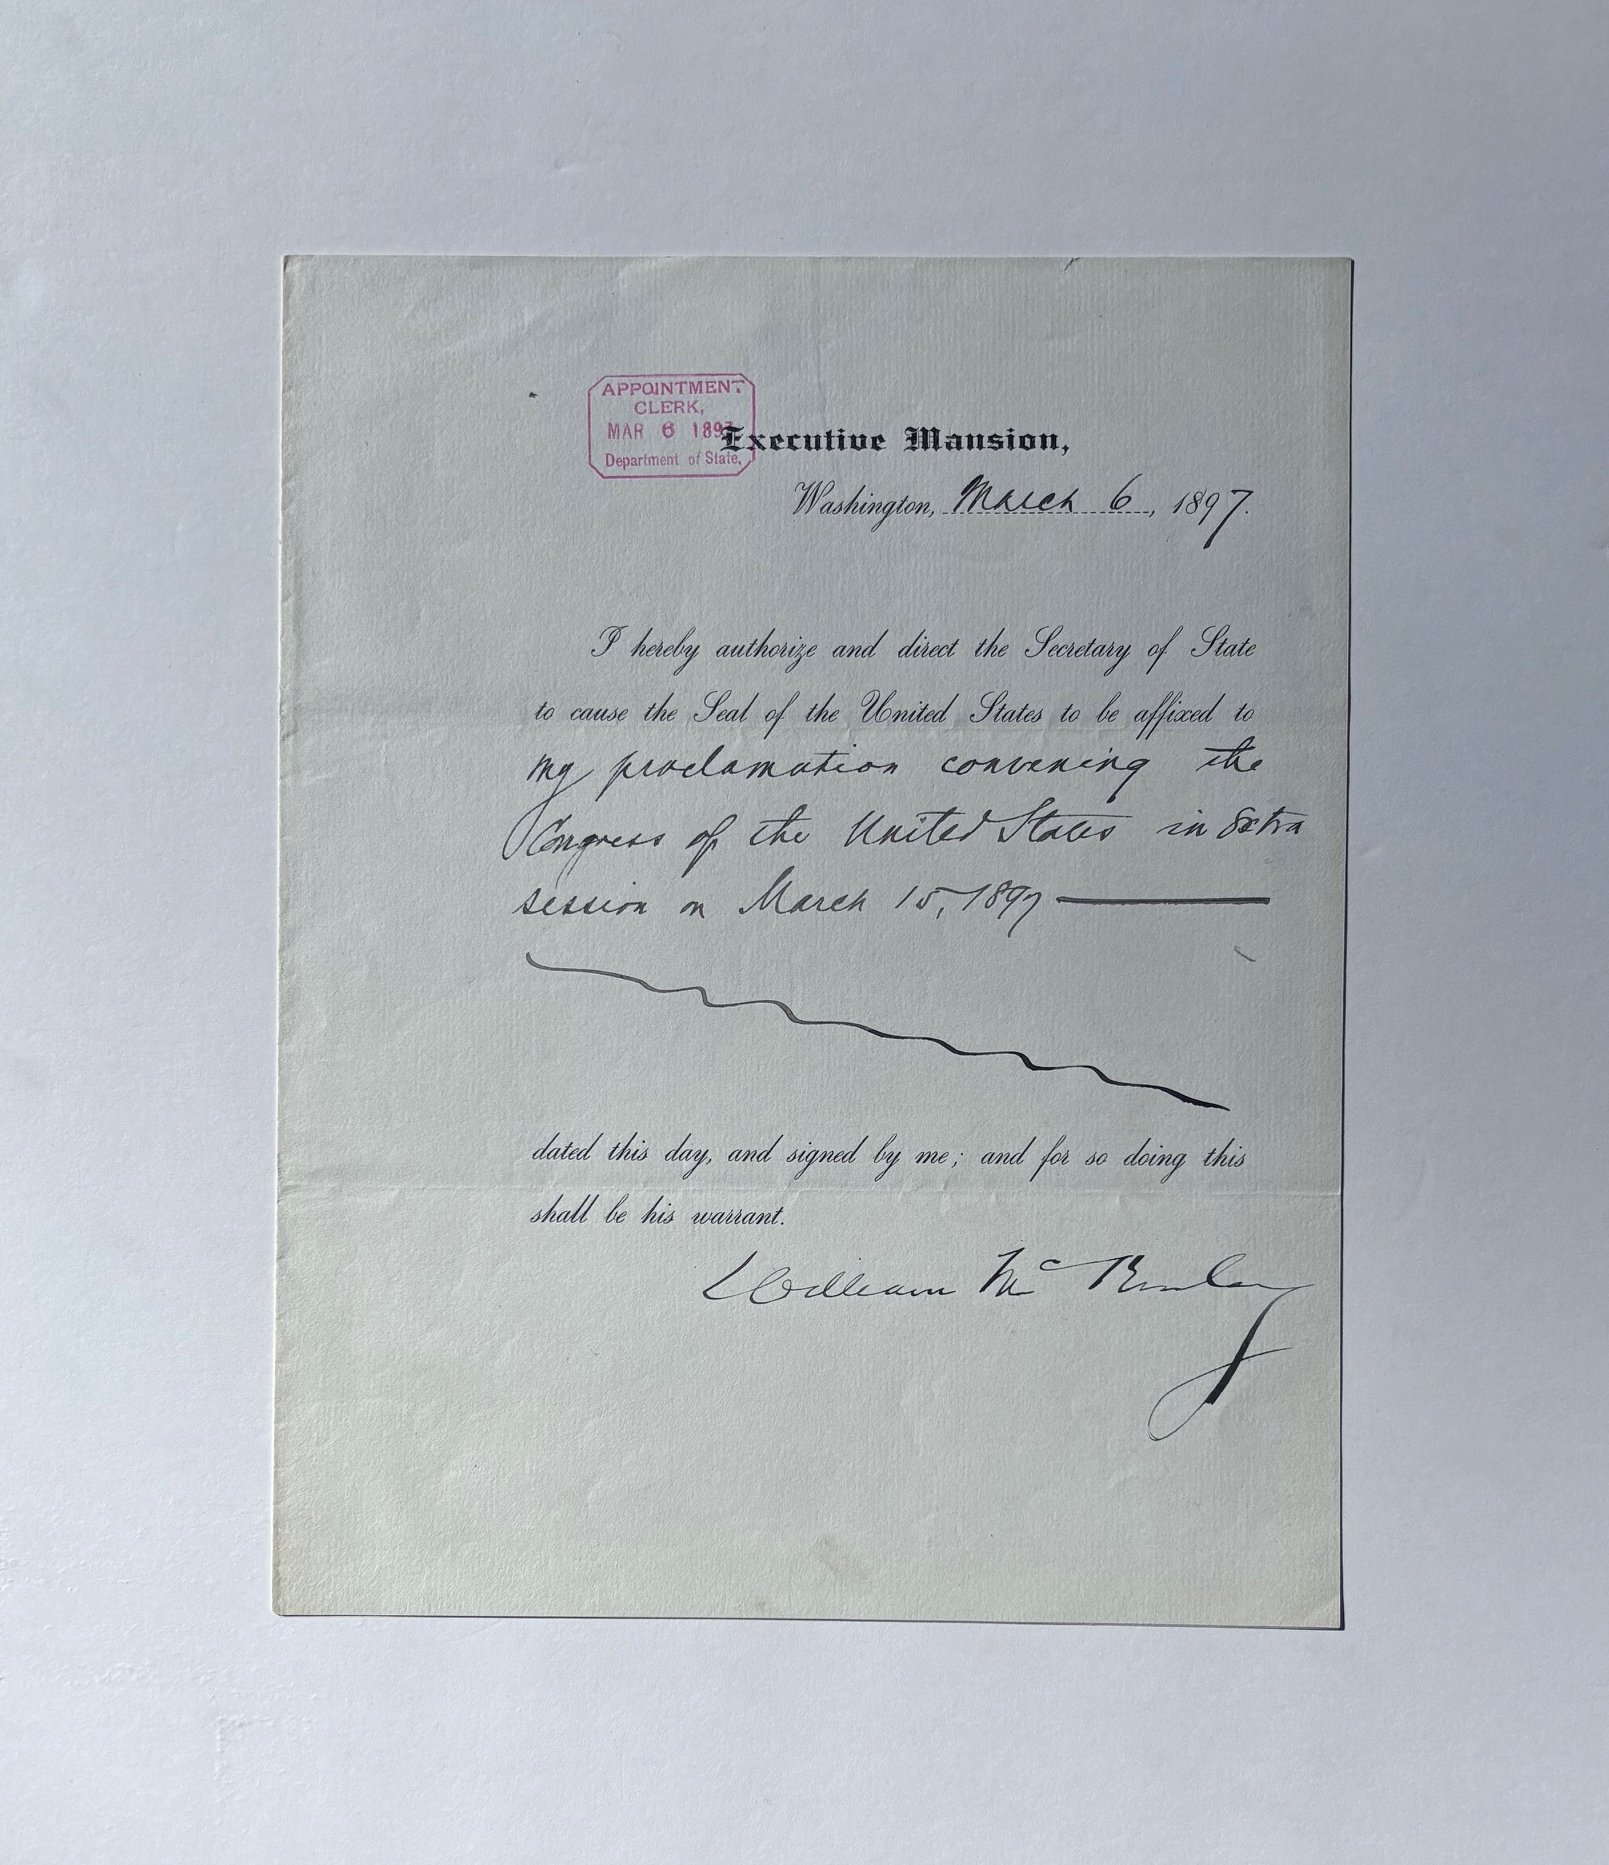 APPOINTMENT
CLERK,
MAR 6 1897
Department of State.
Executive Mansion,
Washington, March 6, 1897.
I hereby authorize and direct the Secretary of State
to cause the Seal of the United States to be affixed to
my proclamation convening the
Congress of the United States in Extra
session on March 15, 1897
dated this day, and signed by me; and for so doing this
shall be his warrant.
William McKinley